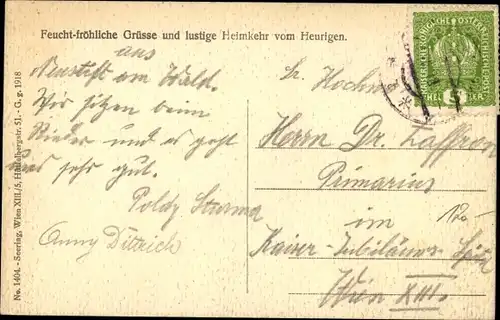 Feucht-fröhliche Grüsse und lustige Heimkehr vom Heurigen.
aus
Neustift am Wald.
Wir sitzen beim
und es geht
uns sehr gut.
Poldy Sturma
Anny Dittrich
No. 1404. - Seering, Wien XIII/5, Hütteldbergstr. 51. - G. g. 1918
KAISERLICHE KÖNIGLICHE ÖSTERREICHISCHE POST
5
HELLER
Sr. Hochw.
Herrn Dr. Zaffron
Primarius
im
Kaiser-Jubiläums-Spital
Wien XIII.